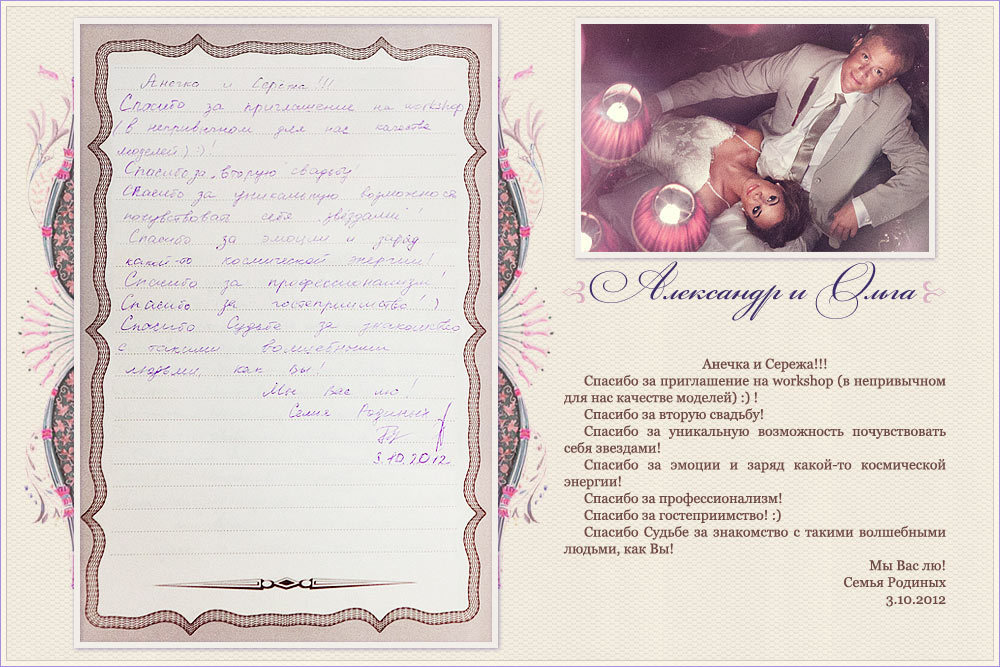 Анечка и Серёжа!!!
Спасибо за приглашение на workshop
(в непривычном для нас качестве
моделей) :) !
Спасибо за "вторую" свадьбу!
Спасибо за уникальную возможность
почувствовать себя звёздами!
Спасибо за эмоции и заряд
какой-то космической энергии!
Спасибо за профессионализм!
Спасибо за гостеприимство! :)
Спасибо Судьбе за знакомство
с такими волшебными
людьми, как Вы!
Мы Вас лю!
Семья Родиных
3.10.2012
Александр и Ольга
Анечка и Сережа!!!
Спасибо за приглашение на workshop (в непривычном
для нас качестве моделей) :) !
Спасибо за вторую свадьбу!
Спасибо за уникальную возможность почувствовать
себя звездами!
Спасибо за эмоции и заряд какой-то космической
энергии!
Спасибо за профессионализм!
Спасибо за гостеприимство! :)
Спасибо Судьбе за знакомство с такими волшебными
людьми, как Вы!
Мы Вас лю!
Семья Родиных
3.10.2012